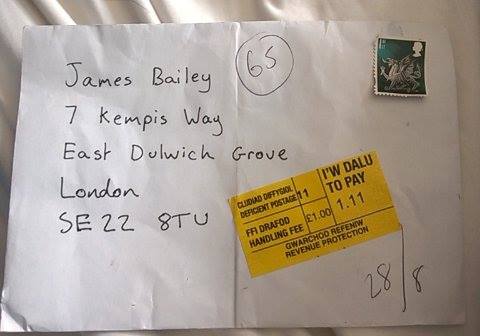 James Bailey
7 Kempis Way
East Dulwich Grove
London
SE22 8TU
65
1st
CLUDIAD DIFFYGIOL
DEFICIENT POSTAGE 11
FFI DRAFOD
HANDLING FEE £1.00
I'W DALU
TO PAY
1.11
GWARCHOD REFENIW
REVENUE PROTECTION
28/8